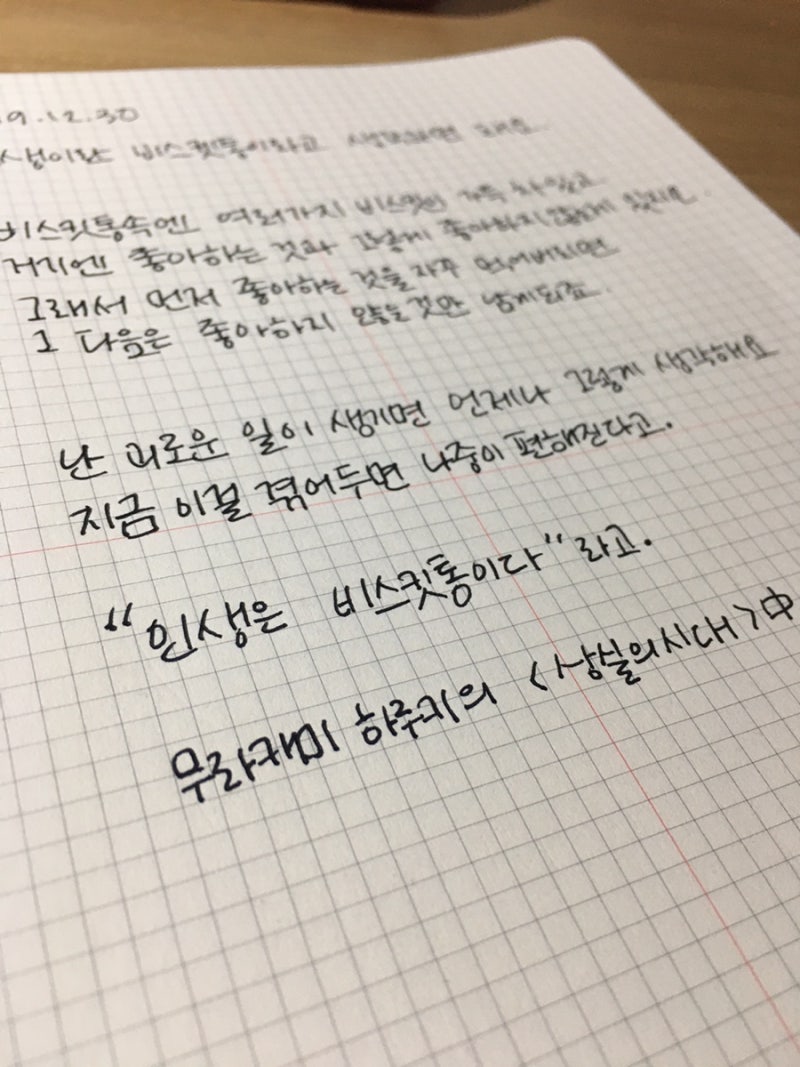 9.12.30
생이란 비스킷통이라고 생각하면 돼요
비스킷통속엔 여러가지 비스킷이 가득 차있고
거기엔 좋아하는 것과 그렇게 좋아하지 않는게 있지요.
그래서 먼저 좋아하는 것을 자꾸 먹어버리면
그 다음은 좋아하지 않는것만 남게되죠.
난 괴로운 일이 생기면 언제나 그렇게 생각해요
지금 이걸 겪어두면 나중이 편해진다고.
"인생은 비스킷통이다"라고.
무라카미 하루키의 <상실의시대>中